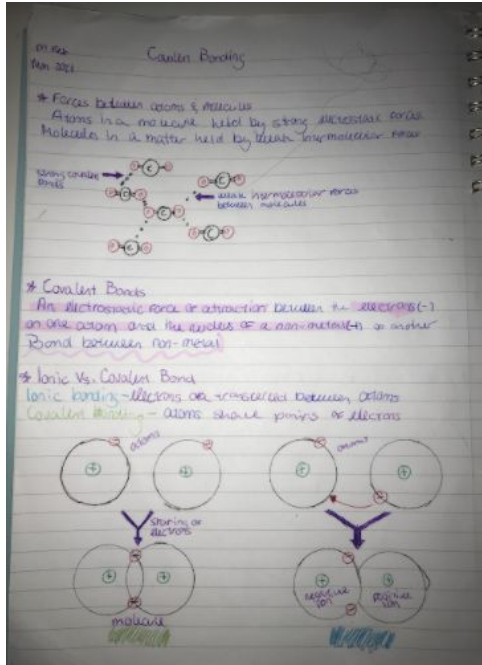 Covalent Bonding
* Forces between atoms & molecules
Atoms in a molecule held by strong electrostatic forces
Molecules in a matter held by weak intermolecular forces
strong covalent
bonds
weak intermolecular forces
between molecules
* Covalent Bonds
An electrostatic force of attraction between the electrons(-)
on one atom and the nucleus of a non-metal(+) or another
Bond between non-metal
* Ionic Vs. Covalent Bond
Ionic bonding - electrons are transferred between atoms
Covalent Bonding - atoms share pairs of electrons
atoms
atoms
sharing of
electrons
negative
ion
positive
ion
molecule